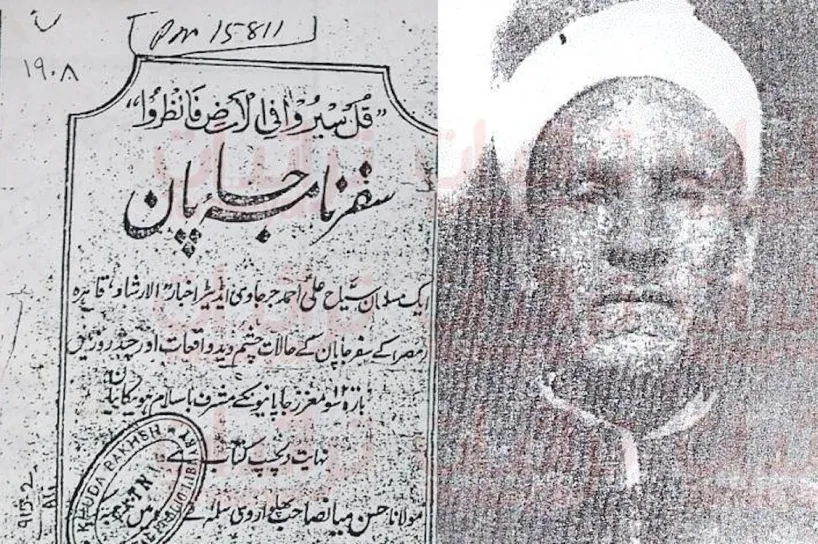 PM 15811
۱۹۰۸
”قُلْ سِيْرُوْا فِی الْاَرْضِ فَانْظُرُوْا“
سفرنامہ جاپان
ایک مسلمان سیّاح علی احمد جرجاوی ایڈیٹر اخبار "الارشاد" قاہرہ
مصر کے سفر جاپان کے حالات چشم دید واقعات اور چند روز میں
بارہ سو معزز جاپانیونکے مشرف باسلام ہونیکا بیان
۱۲۰۰
نہایت دلچسپ کتاب ہے
مولانا حسن میانصاحب پھلواروی سلمہ نے میں
KHUDA BAKHSH
PATNA
915.2